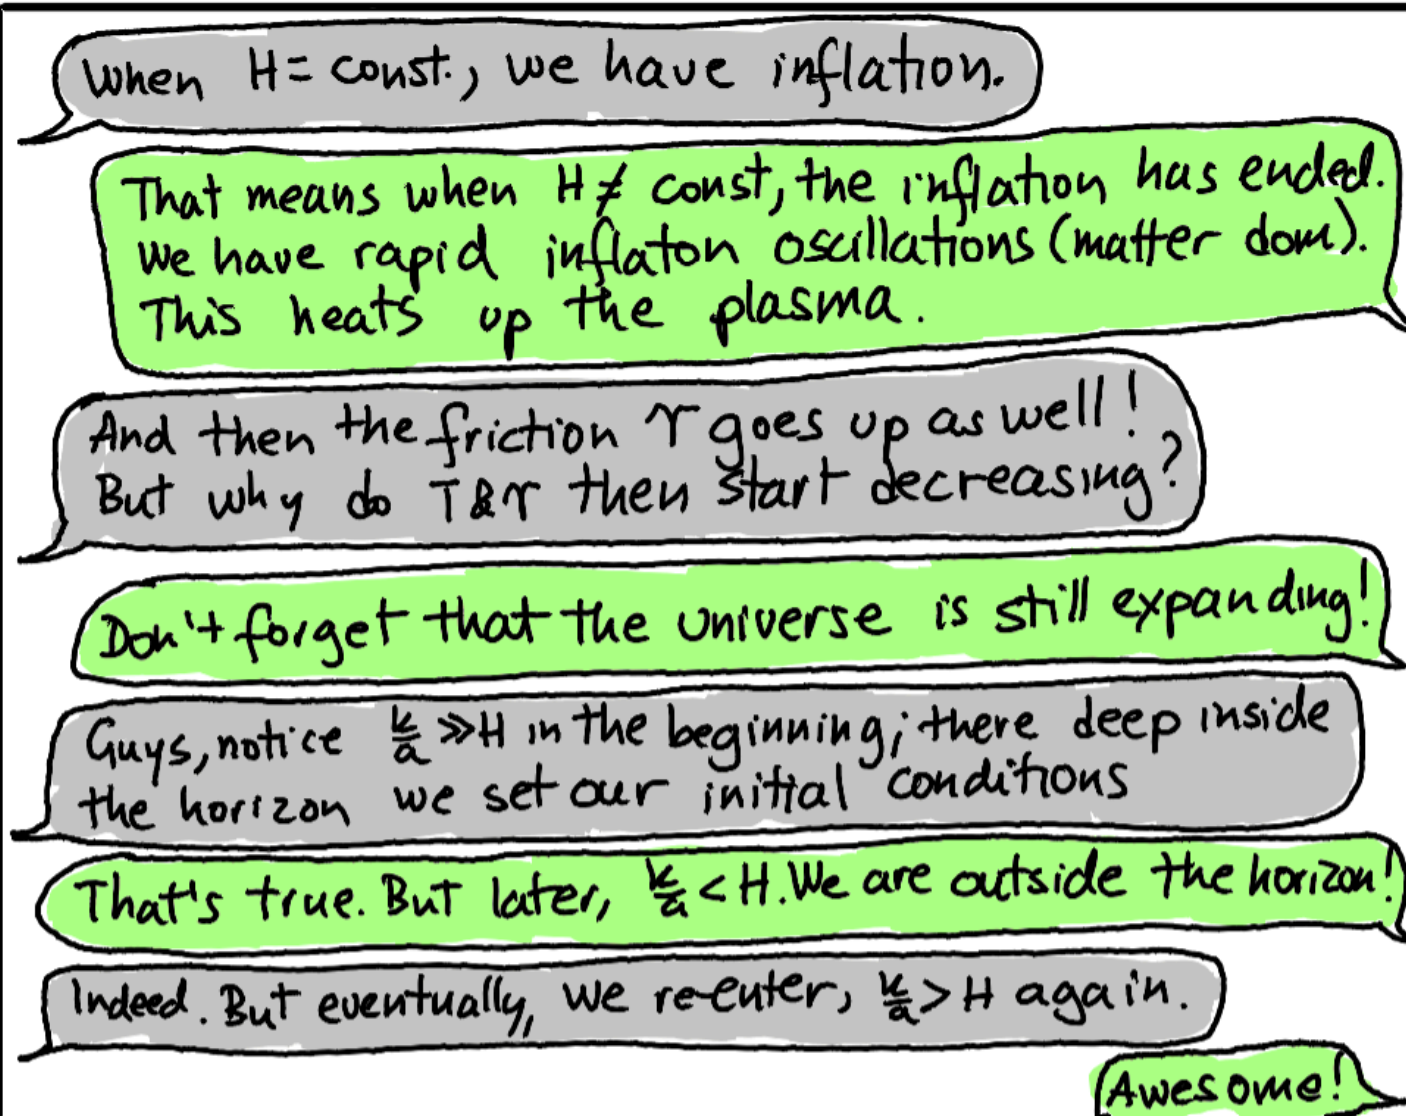 When H = const., we have inflation.
That means when H ≠ const, the inflation has ended.
We have rapid inflaton oscillations (matter dom).
This heats up the plasma.
And then the friction Υ goes up as well!
But why do T & Υ then start decreasing?
Don't forget that the universe is still expanding!
Guys, notice k/a ≫ H in the beginning; there deep inside
the horizon we set our initial conditions
That's true. But later, k/a < H. We are outside the horizon!
Indeed. But eventually, we re-enter, k/a > H again.
Awesome!